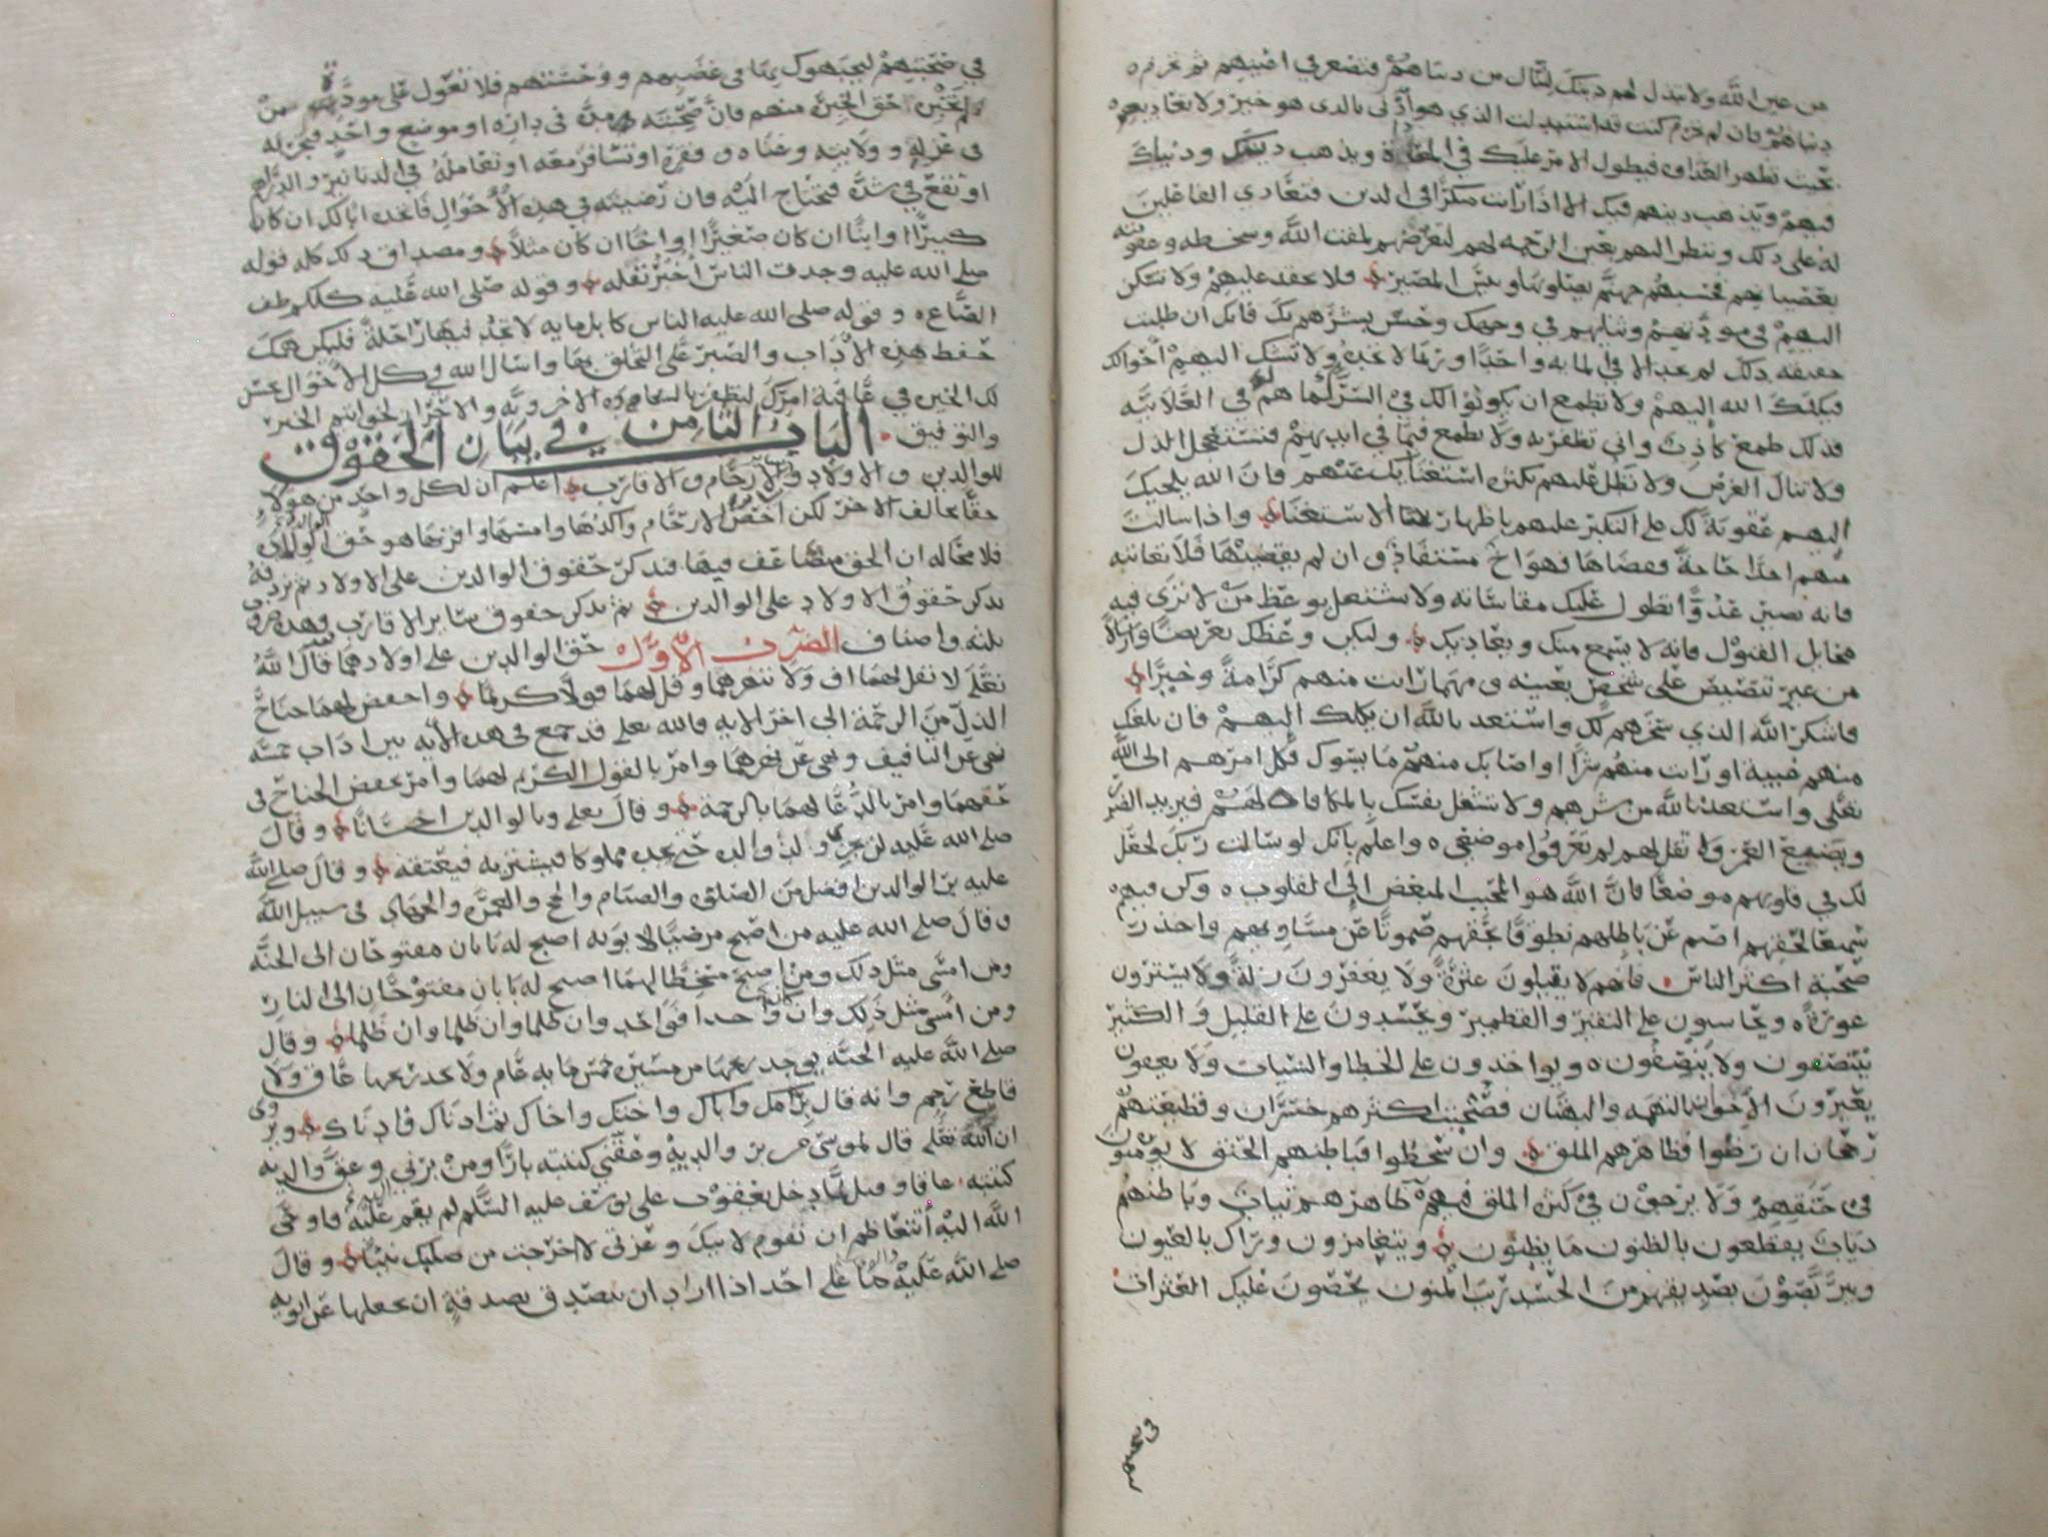 من عين الله ولا تبذل لهم دينك لتنال من دنياهم فتصغر في اعينهم ثم تحرم
دنياهم فان لم تحرم كنت قد استبدلت الذي هو ادنى بالذي هو خير ولا تعاديهم
بحيث تظهر العداوه فيطول الامر عليك في المعاداة ويذهب دينك ودنياك
فيهم ويذهب دينهم فيك الا اذا رايت منكرا في الدين فتعادي افعالهم
له على ذلك وتنظر اليهم بعين الرحمه لهم لتعرضهم لمقت الله وسخطه وعقوبته
بعصيانهم فحسبهم جهنم يصلونها وبئس المصير فلا تحقد عليهم ولا تسكن
اليهم في مودتهم وثنايهم في وجهك وحسن بشرهم بك فانك ان طلبت
حقيقه ذلك لم تجد الا في المايه واحدا وربما لا تجده ولا تشك اليهم احوالك
فيكلك الله اليهم ولا تطمع ان يكونوا لك في السر كما هم في العلانيه
فذلك طمع كاذب واني تظفر به ولا تطمع فيما في ايديهم فتستعجل الذل
ولا تنال الغرض ولا تطل عليهم بكثره استغنايك عنهم فان الله يلجيك
اليهم عقوبة لك على التكبر عليهم باظهار الاستغنا واذا سالت
منهم احدا حاجة فقضاها فهو اخ مستفاد وان لم يقضها فلا تعاتبه
فانه يصير عدوا تطول عليك مقاساته ولا تشتغل بوعظ من لا ترى فيه
مخايل القبول فانه لا يسمع منك ويعاديك وليكن وعظك تعريضا وارسالا
من غير تنصيص على شخص بعينه ومهما رايت منهم كرامة وخيرا
فاشكر الله الذي سخرهم لك واستعذ بالله ان يكلك اليهم فان بلغك
منهم غيبة او رايت منهم شرا او اصابك منهم ما يسوك فكل امرهم الى الله
تعلى واستعذ بالله من شرهم ولا تشغل نفسك بالمكافاة لهم فيزيد الضرر
ويضيع العمر ولا تقل لهم لم تعرفوا موضعي واعلم بانك لو سالت ربك لجعل
لك في قلوبهم موضعا فان الله هو المحبب المبغض الى القلوب وكن فيهم
سميعا لحقهم اصم عن باطلهم نطوقا بحقهم صموتا عن مساويهم واحذر
صحبة اكثر الناس فانهم لا يقيلون عثرة ولا يغفرون زلة ولا يسترون
عورة ويحاسبون على النقير والقطمير ويحسدون على القليل والكثير
ينتصفون ولا ينصفون ويواخذون على الخطا والنسيان ولا يعفون
يغيرون الاخوان بالنميمه والبهتان فصحبت اكثرهم خسران وقطيعتهم
رجحان ان رضوا فظاهرهم الملق وان سخطوا فباطنهم الحنق لا يؤمنون
في حنقهم ولا يرجون في ملقهم ظاهرهم ثياب وباطنهم
ذياب يقطعون بالظنون ويتغامزون وراك بالعيون
ويتربصون بصديقهم من الحسد ريب المنون يحصون عليك العثرات
في صحبتهم ليجبهوك بها في غضبهم ووحشتهم فلا تعول على مودة من
لم تختبره حق الخبرة منهم فان صحبته مدة في داره او موضع واحد فتجربه
في عزله وولايته وغناه وفقره او تسافر معه او تعامله في الدنانير والدراهم
او تقع في شدة فتحتاج اليه فان رضيته في هذه الاحوال فاتخذه ابا لك ان كان
كبيرا او ابنا ان كان صغيرا او اخا ان كان مثلا ومصداق ذلك كله قوله
صلى الله عليه وجدت الناس اخبر تقله وقوله صلى الله عليه كلكم طف
الصاع وقوله صلى الله عليه الناس كابل مايه لا تجد فيها راحلة فليكن همك
حفظ هذه الاداب والصبر على التخلق بها واسال الله في كل الاحوال حسن
لك الخيره في عاقبة امرك لتظفر بالسعادة الاخرويه والاحراز لخواتيم الخير
والتوفيق الباب الثامن في بيان الحقوق
للوالدين والاولاد والارحام والاقارب اعلم ان لكل واحد من هؤلاء
حقا يخالف الاخر لكن اخص الارحام واكدها وامسها واقربها هو حق الوالدين
فلا محاله ان الحق متضاعف فيها فنذكر حقوق الوالدين على الاولاد ثم نردفه
بذكر حقوق الاولاد على الوالدين ثم نذكر حقوق ساير الاقارب فهذه
ثلثه اصناف الضرب الاول حق الوالدين على اولادهما قال الله
تعلى لا تقل لهما اف ولا تنهرهما وقل لهما قولا كريما واخفض لهما جناح
الذل من الرحمة الى اخر الايه فالله تعلى قد جمع في هذه الايه بين اداب خمسه
نهى عن التافيف ونهى عن نهرهما وامر بالقول الكريم لهما وامر بخفض الجناح في
حقهما وامر بالدعا لهما بالرحمة وقال تعلى وبالوالدين احسانا وقال
صلى الله عليه لن يجزي ولد والده حتى يجده مملوكا فيشتريه فيعتقه وقال صلى الله
عليه بر الوالدين افضل من الصلوه والصيام والحج والعمره والجهاد في سبيل الله
وقال صلى الله عليه من اصبح مرضيا لابويه اصبح له بابان مفتوحان الى الجنه
ومن امسى مثل ذلك ومن اصبح مسخطا لهما اصبح له بابان مفتوحان الى النار
ومن امسى مثل ذلك وان كان واحدا فواحد وان ظلما وان ظلما وان ظلما وقال
صلى الله عليه الجنه يوجد ريحها من مسيره خمس مايه عام ولا يجد ريحها عاق ولا
قاطع رحم وانه قال بر امك واباك واختك واخاك ثم ادناك فادناك وروى
ان الله تعلى قال لموسى من بر والديه وعقني كتبته بارا ومن برني وعق والديه
كتبته عاقا وقيل لما دخل يعقوب على يوسف عليه السلم لم يقم اليه فاوحى
الله اليه اتتعاظم ان تقوم لابيك وعزتي لا اخرجت من صلبك نبيا وقال
صلى الله عليه ما على احد اذا اراد ان يتصدق بصدقة ان يجعلها عن ابويه